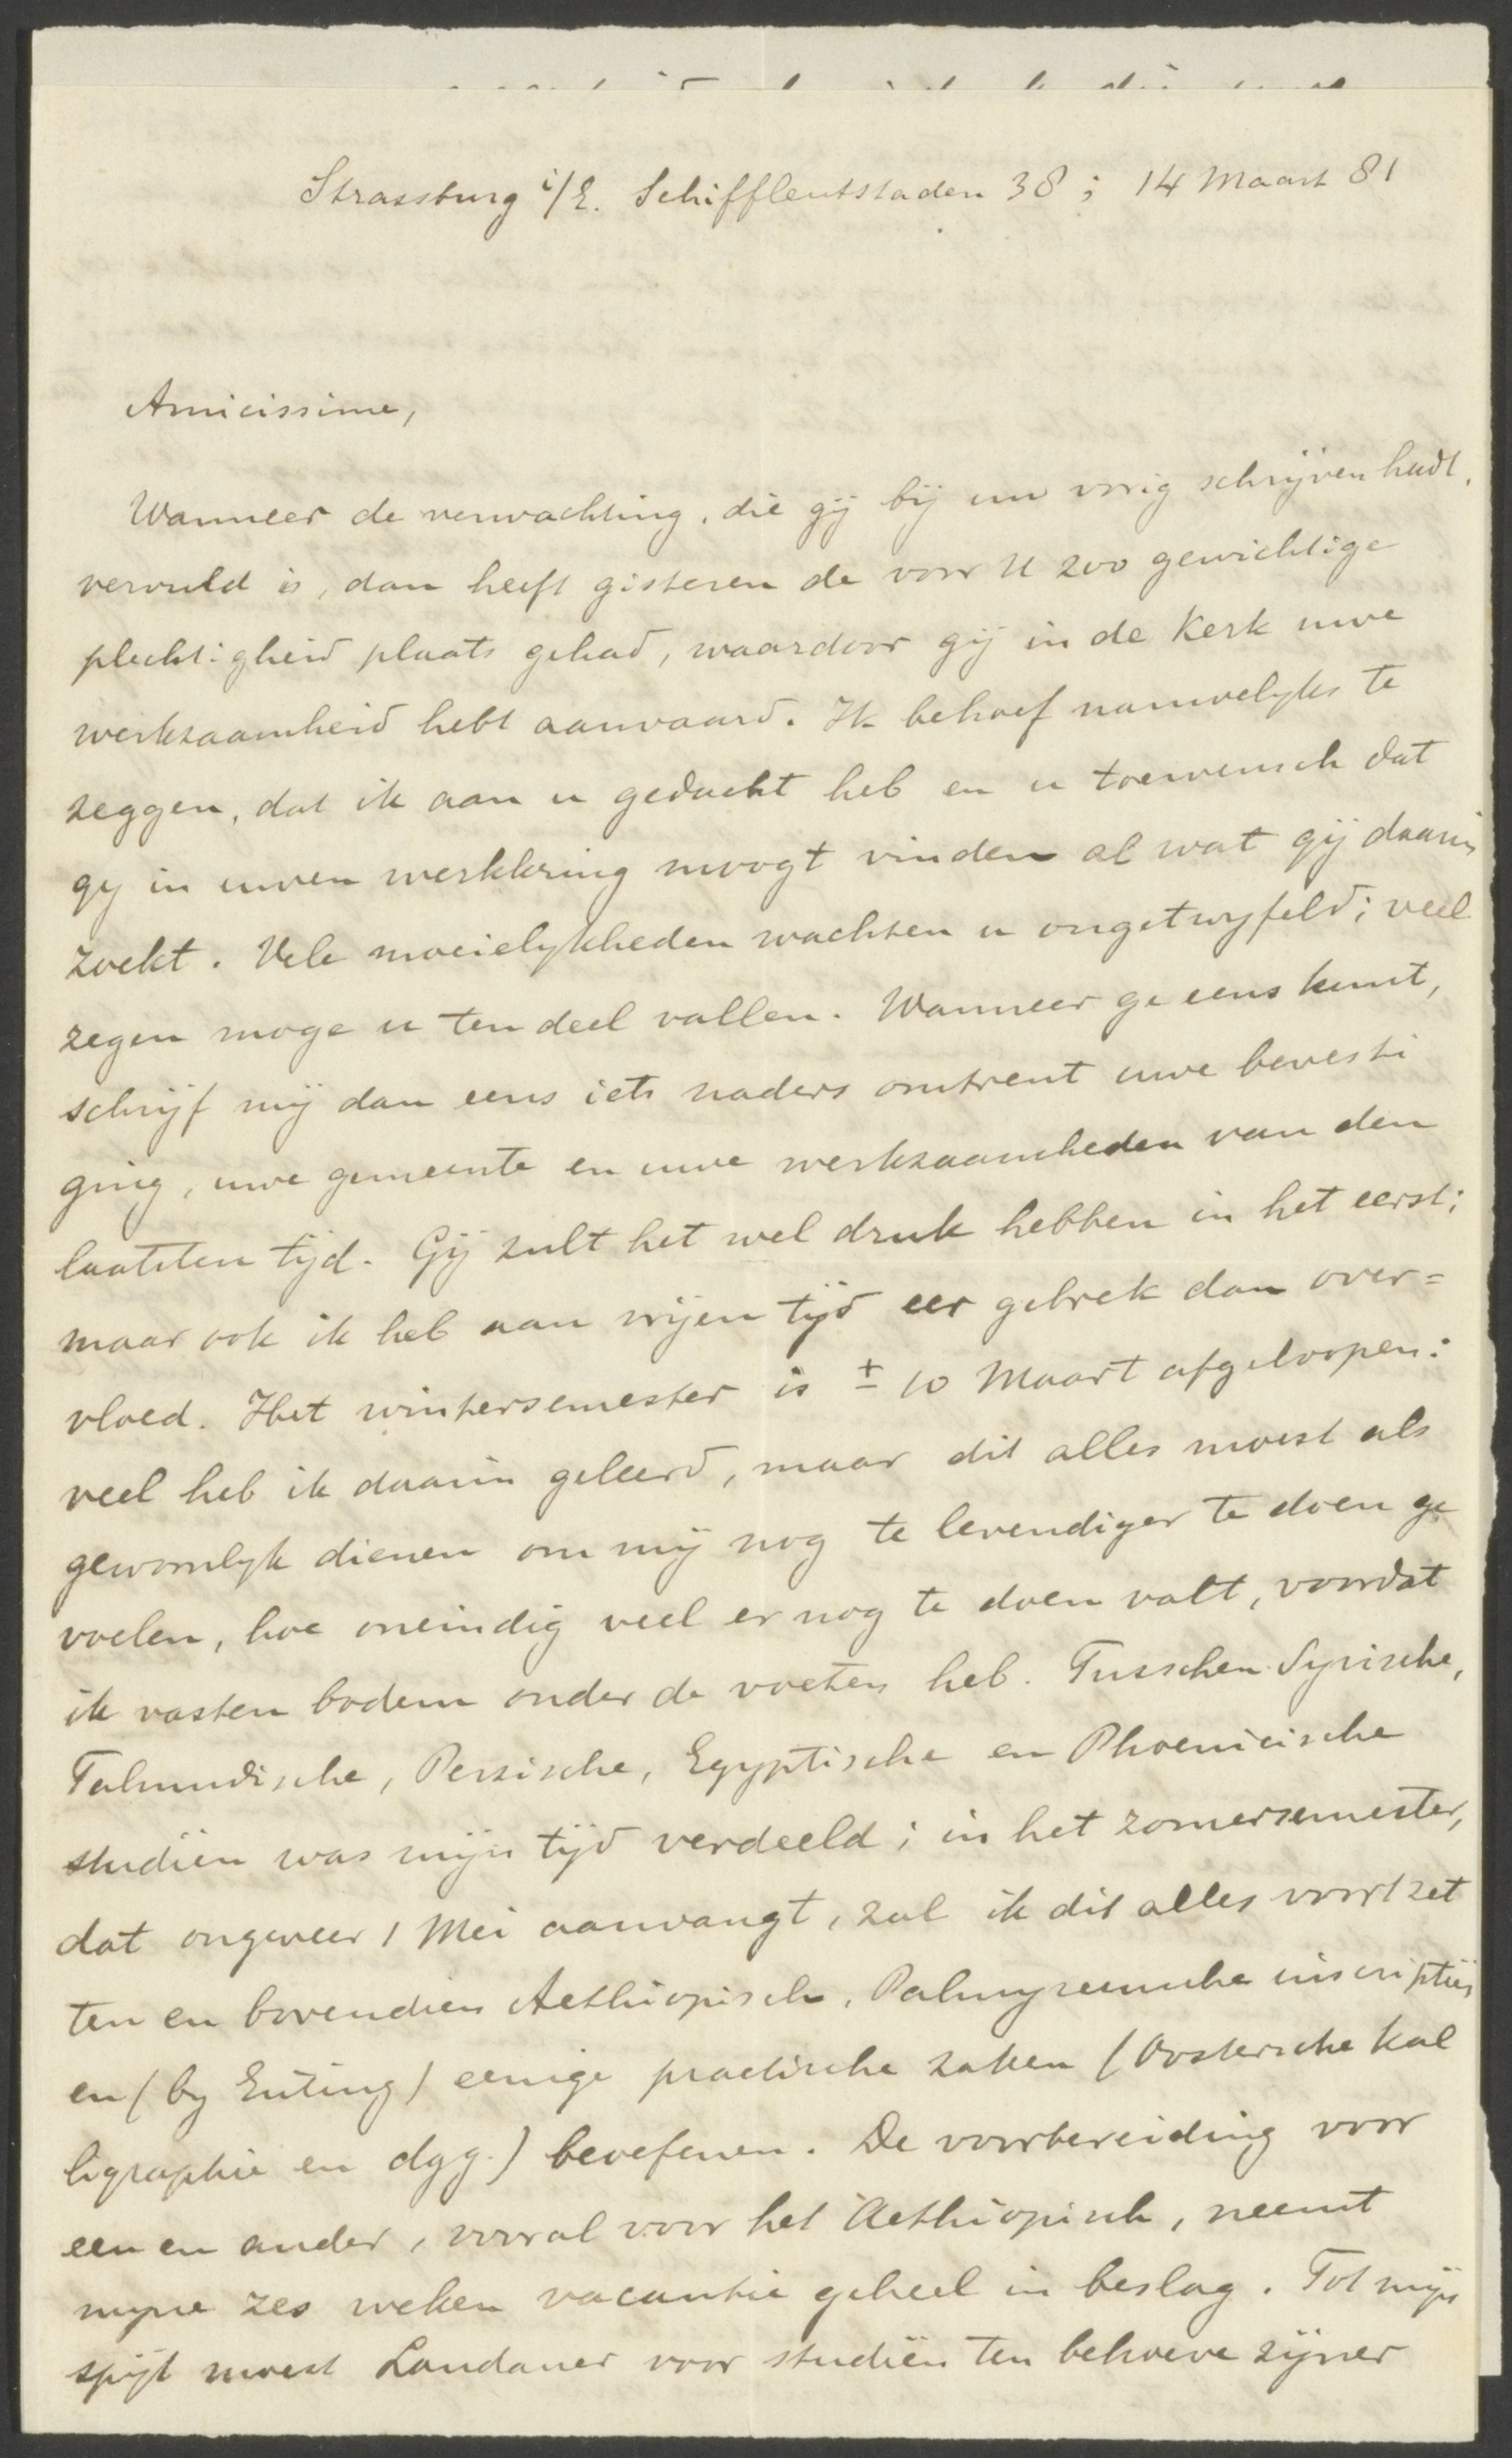 Strassburg i/E. Schiffleutstaden 38; 14 Maart 81
Amicissime,
Wanneer de verwachting, die gij bij uw vorig schrijven hadt,
vervuld is, dan heeft gisteren de voor U zoo gewichtige
plechtigheid plaats gehad, waardoor gij in de Kerk uwe
werkzaamheid hebt aanvaard. Ik behoef nauwelyks te
zeggen, dat ik aan u gedacht heb en u toewensch dat
gy in uwen werkkring moogt vinden al wat gij daarin
zoekt. Vele moeielykheden wachten u ongetwyfeld; veel
zegen moge u ten deel vallen. Wanneer ge eens kunt,
schrijf mij dan eens iets naders omtrent uwe bevesti
ging, uwe gemeente en uwe werkzaamheden van den
laatsten tijd. Gij zult het wel druk hebben in het eerst;
maar ook ik heb aan vrijen tijd eer gebrek dan over=
vloed. Het wintersemester is ± 10 Maart afgeloopen:
veel heb ik daarin geleerd, maar dit alles moest als
gewoonlyk dienen om mij nog te levendiger te doen ge
voelen, hoe oneindig veel er nog te doen valt, voordat
ik vasten bodem onder de voeten heb. Tusschen Syrische,
Talmudische, Perzische, Egyptische en Phoenicische
studiën was mijn tijd verdeeld; in het zomersemester,
dat ongeveer 1 Mei aanvangt, zal ik dit alles voortzet
ten en bovendien Aethiopisch, Palmyreensche inscriptiës
en (by Euting) eenige practische zaken (Oostersche kal
ligraphie en dgg.) beoefenen. De voorbereiding voor
een en ander, vooral voor het Aethiopisch, neemt
myne zes weken vacantie geheel in beslag. Tot mijn
spijt moest Landauer voor studiën ten behoeve zijner